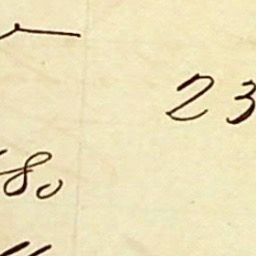 23
80